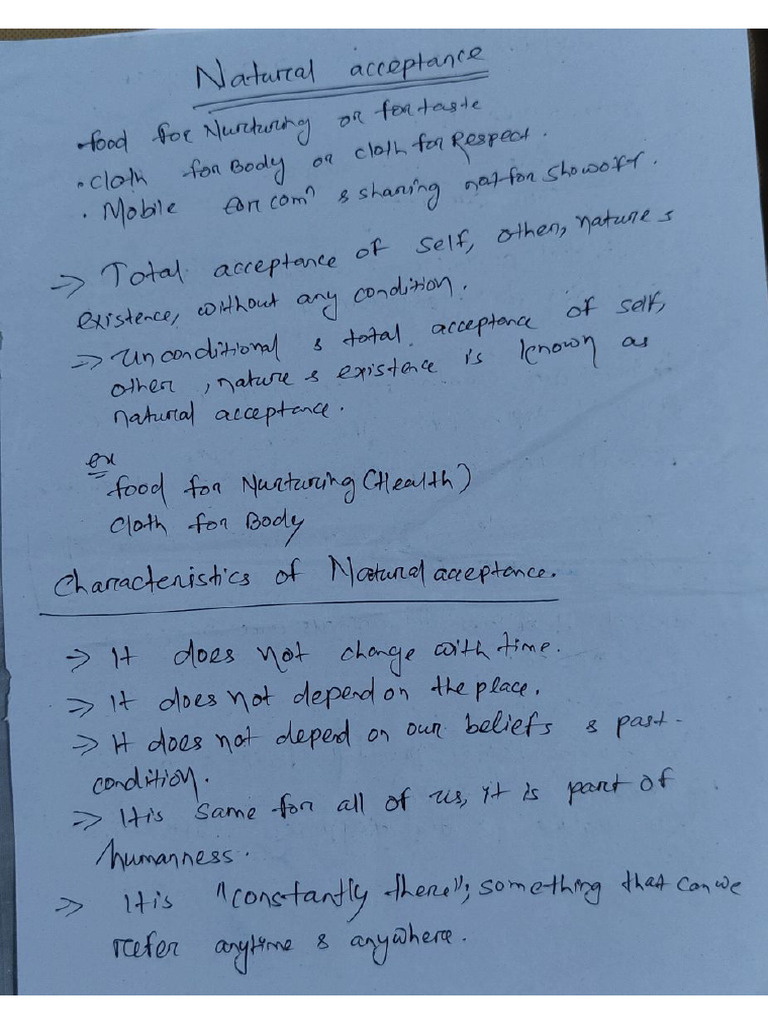 Natural acceptance
• food for Nurturing or for taste
• cloth for Body or cloth for Respect.
• Mobile for comn & sharing not for Showoff.
=> Total acceptance of self, other, nature &
existence, without any condition.
=> Unconditional & total acceptance of self,
other, nature & existence is known as
natural acceptance.
ex
food for Nurturing (Health)
cloth for Body
Characteristics of Natural acceptance.
=> It does not change with time.
=> It does not depend on the place.
=> It does not depend on our beliefs & past
condition.
=> It is same for all of us, it is part of
humanness.
=> It is "constantly there"; something that can we
refer anytime & anywhere.